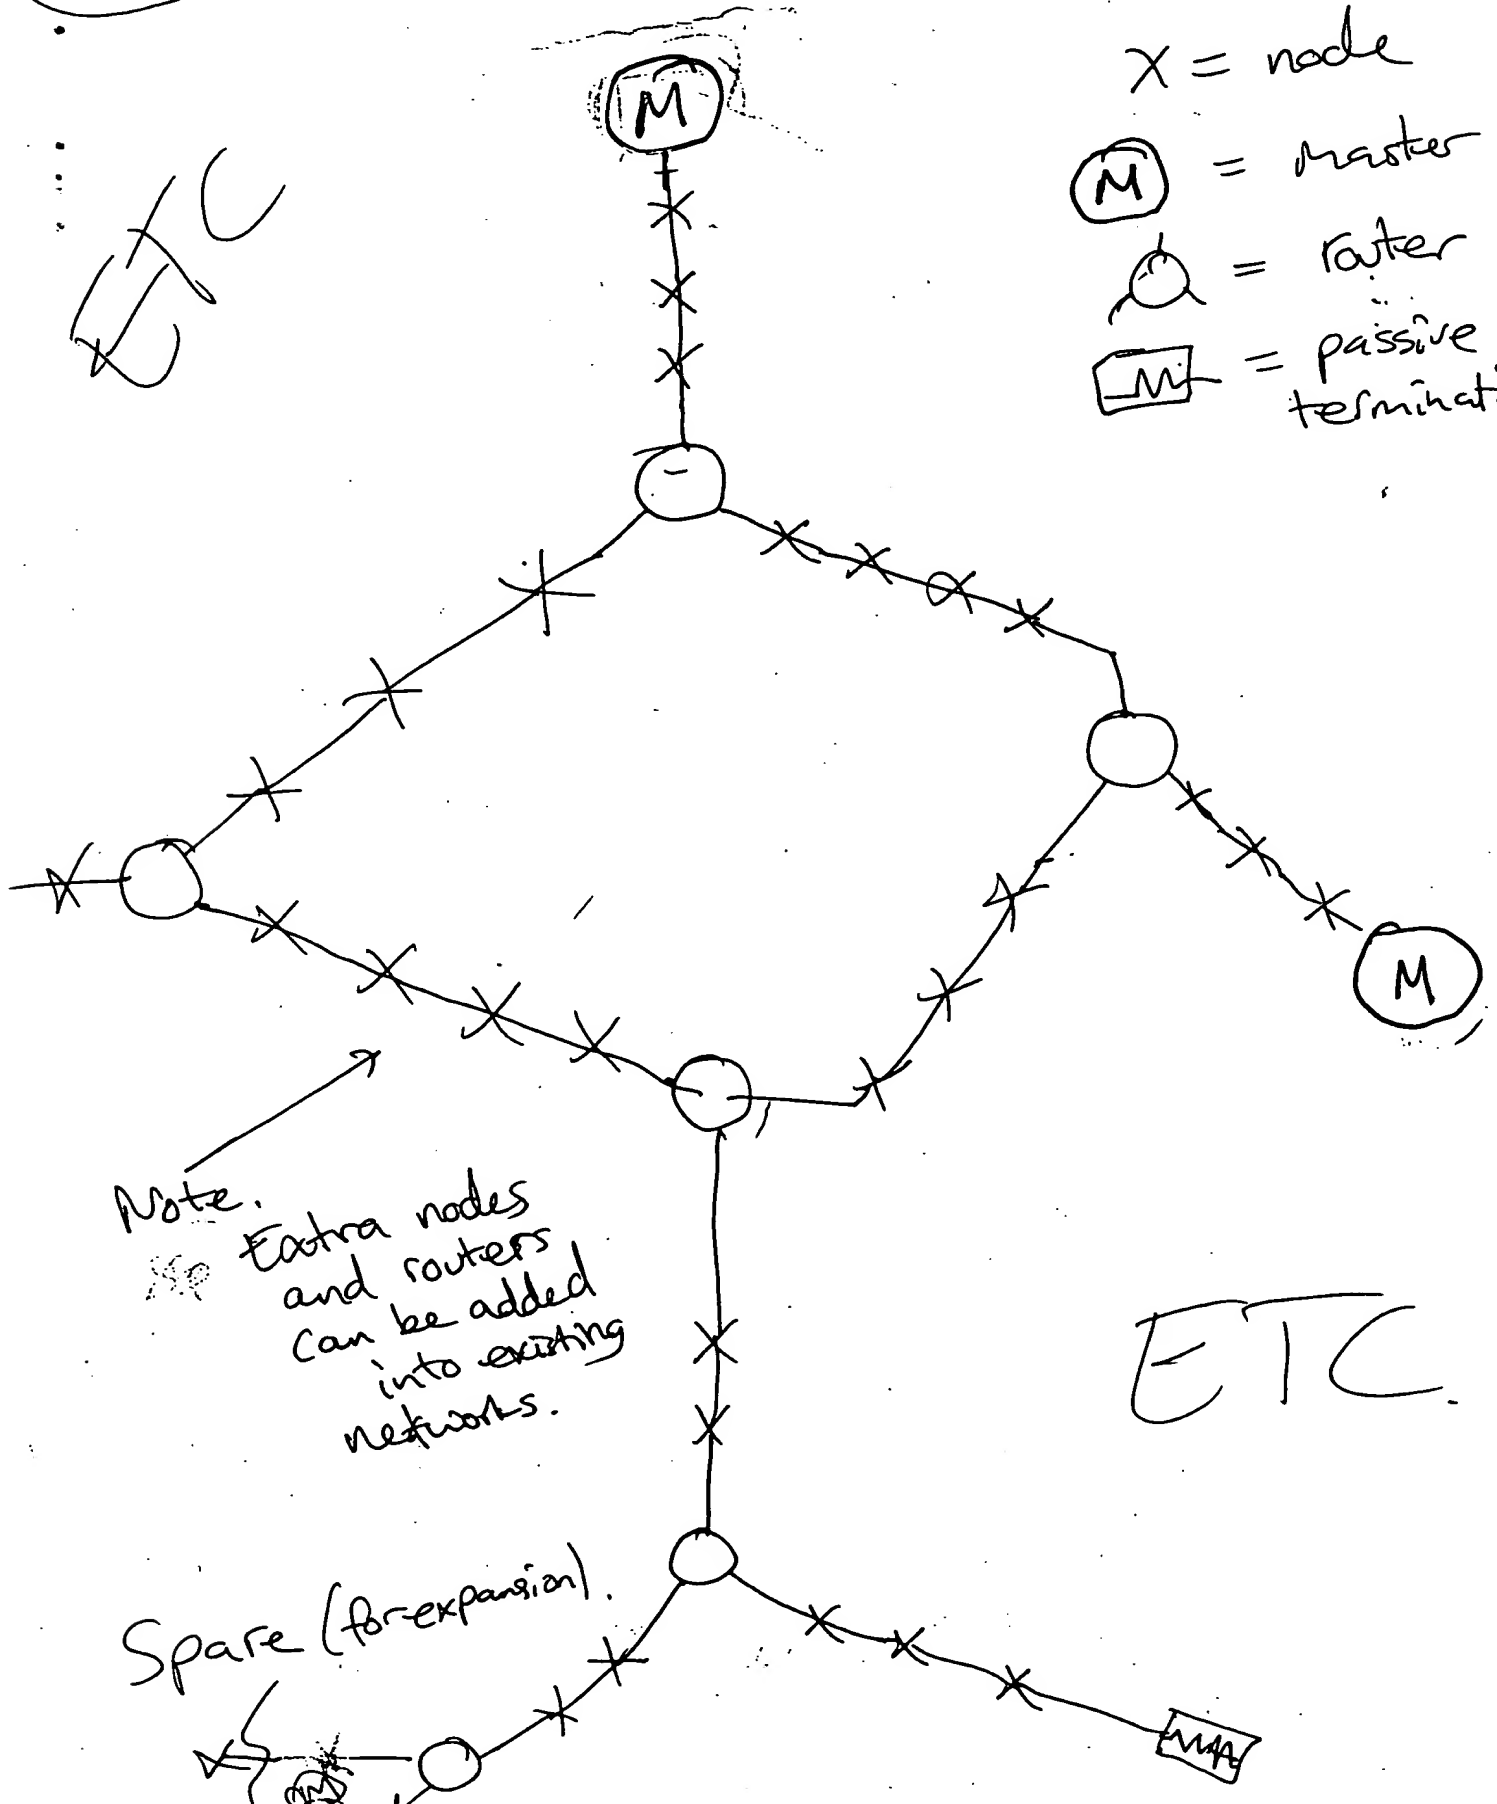 M
X = node
M = master
= router
= passive
terminat
ETC
M
Note.
Extra nodes
and routers
can be added
into existing
networks.
ETC.
Spare (for expansion).